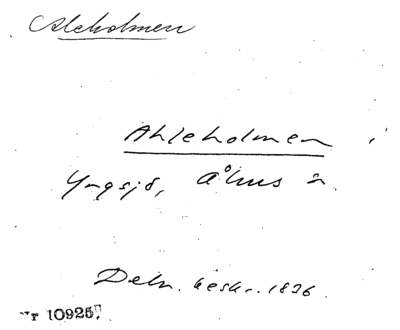 Aleholmen
Ahleholmen i
Yngsjö, Åhus sn.
Deln. beskr. 1836.
nr 10925.